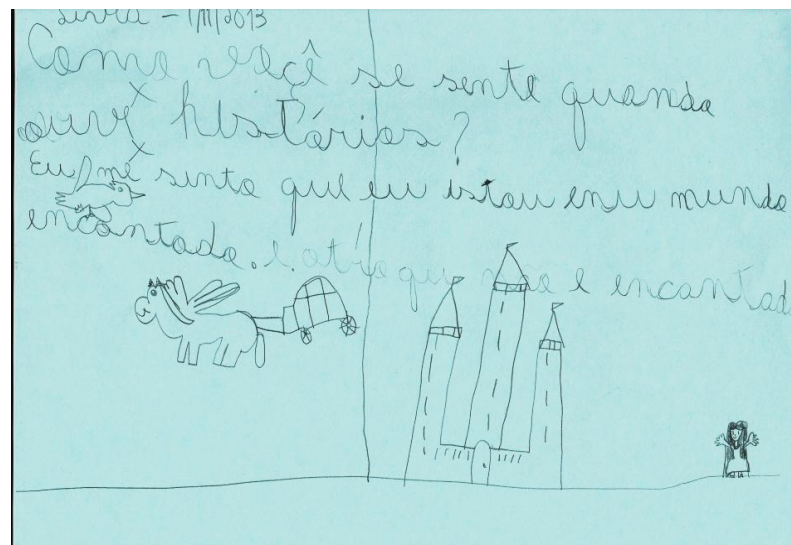 Lívia - 1/11/2013
Como você se sente quando
ouve histórias?
Eu me sinto que eu istou enu mundo
encantado. e. que não e encantad